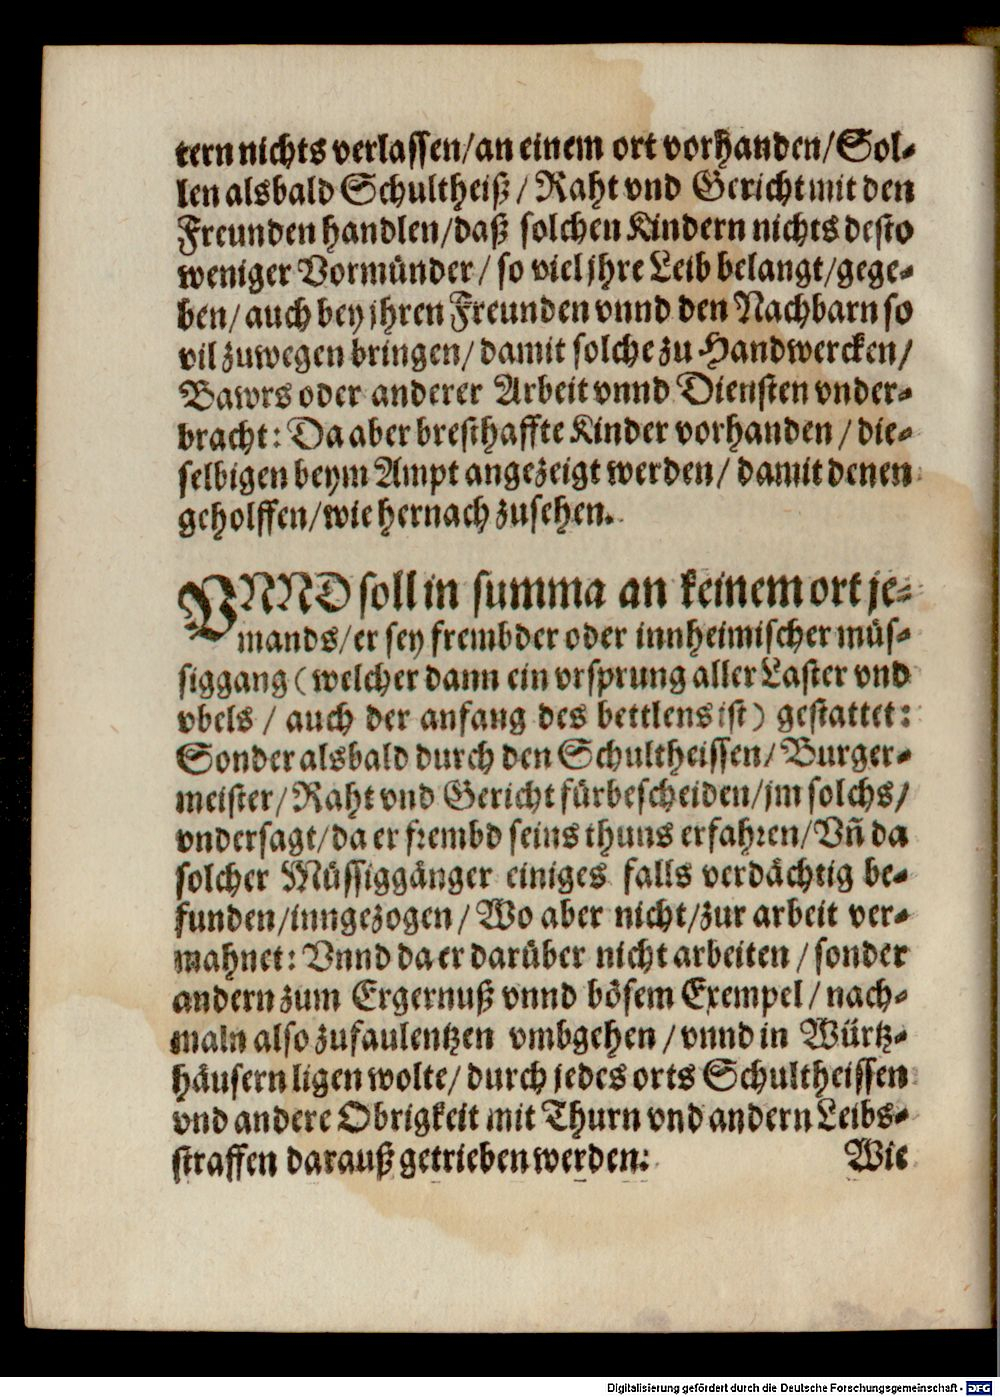 tern nichts verlassen/ an einem ort vorhanden/ Sol-
len alsbald Schultheiß/ Raht vnd Gericht mit den
Freunden handlen/ daß solchen Kindern nichts desto
weniger Vormünder/ so viel jhre Leib belangt/ gege-
ben/ auch bey jhren Freunden vnnd den Nachbarn so
vil zuwegen bringen/ damit solche zu Handwercken/
Bawrs oder anderer Arbeit vnnd Diensten vnder-
bracht: Da aber bresthaffte Kinder vorhanden/ die-
selbigen beym Ampt angezeigt werden/ damit denen
geholffen/ wie hernach zusehen.
VNND soll in summa an keinem ort je-
mands/ er sey frembder oder innheimischer müs-
siggang (welcher dann ein vrsprung aller Laster vnd
vbels/ auch der anfang des bettlens ist) gestattet:
Sonder alsbald durch den Schultheissen/ Burger-
meister/ Raht vnd Gericht fürbescheiden/ jm solchs/
vndersagt/ da er frembd seins thuns erfahren/ Vñ da
solcher Müssiggänger einiges falls verdächtig be-
funden/ inngezogen/ Wo aber nicht/ zur arbeit ver-
mahnet: Vnnd da er darüber nicht arbeiten/ sonder
andern zum Ergernuß vnnd bösem Exempel/ nach-
maln also zufaulentzen vmbgehen/ vnnd in Würtz-
häusern ligen wolte/ durch jedes orts Schultheissen
vnd andere Obrigkeit mit Thurn vnd andern Leibs-
straffen darauß getrieben werden:
Wie
Digitalisierung gefördert durch die Deutsche Forschungsgemeinschaft - DFG